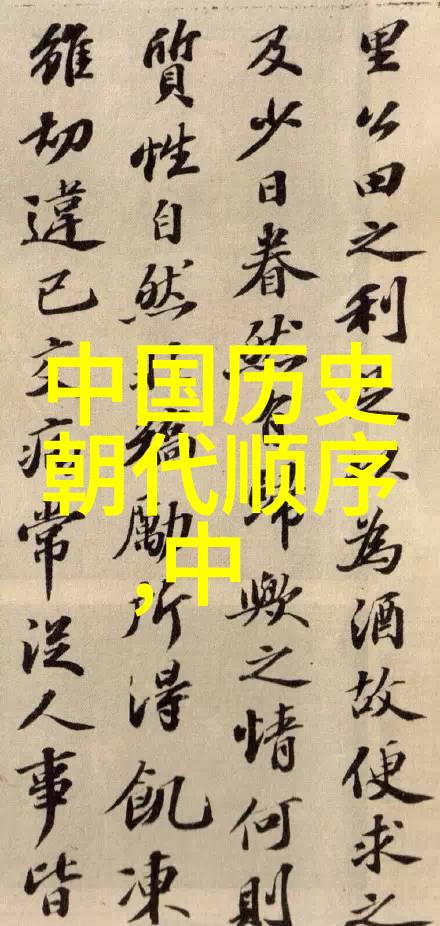 中国历史
朝代顺序
,中
里公田之利為酒故便求之
及少日眷然有歸歟之情何則
質性自然非矯勵所得飢凍
雖切違已交病常從人事皆